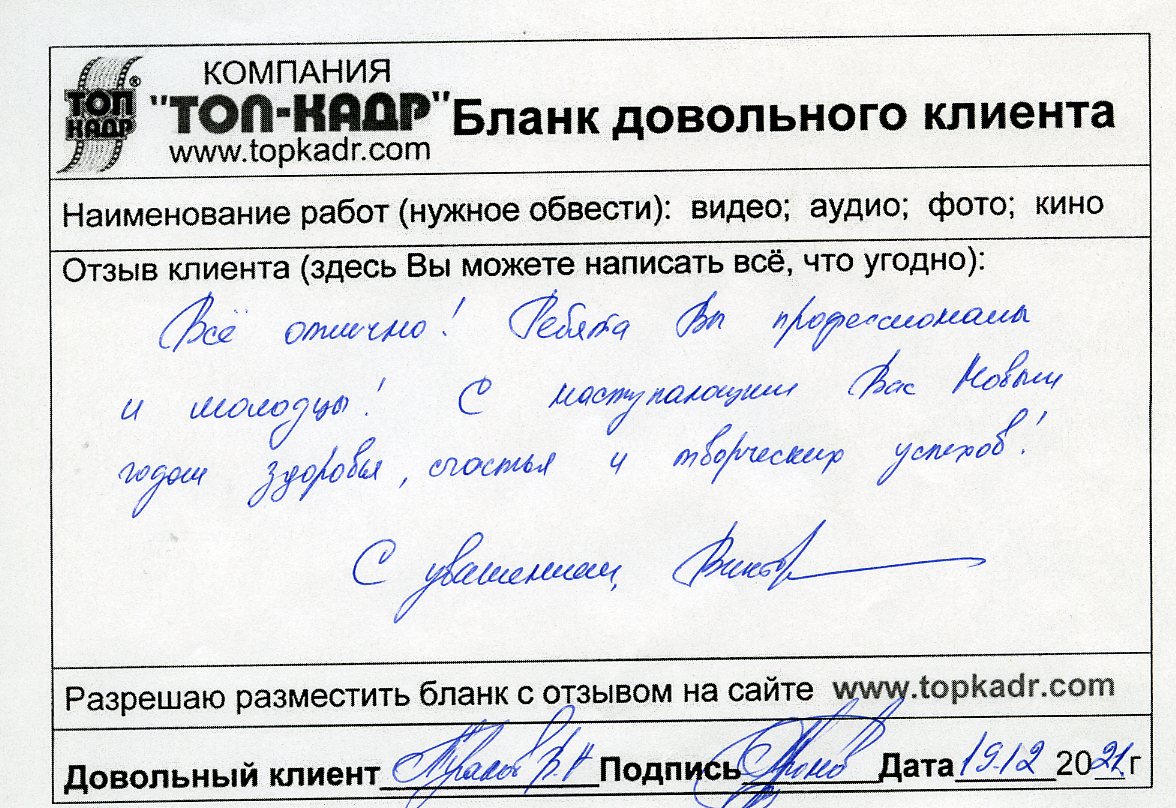 ТОП
КАДР
®
КОМПАНИЯ
"ТОП-КАДР"
www.topkadr.com
Бланк довольного клиента
Наименование работ (нужное обвести): видео; аудио; фото; кино
Отзыв клиента (здесь Вы можете написать всё, что угодно):
Всё отлично! Ребята Вы профессионалы
и молодцы! С наступающим Вас Новым
годом здоровья, счастья и творческих успехов!
С уважением, Виктор
Разрешаю разместить бланк с отзывом на сайте www.topkadr.com
Довольный клиент Подпись Дата 19.12 2021 г